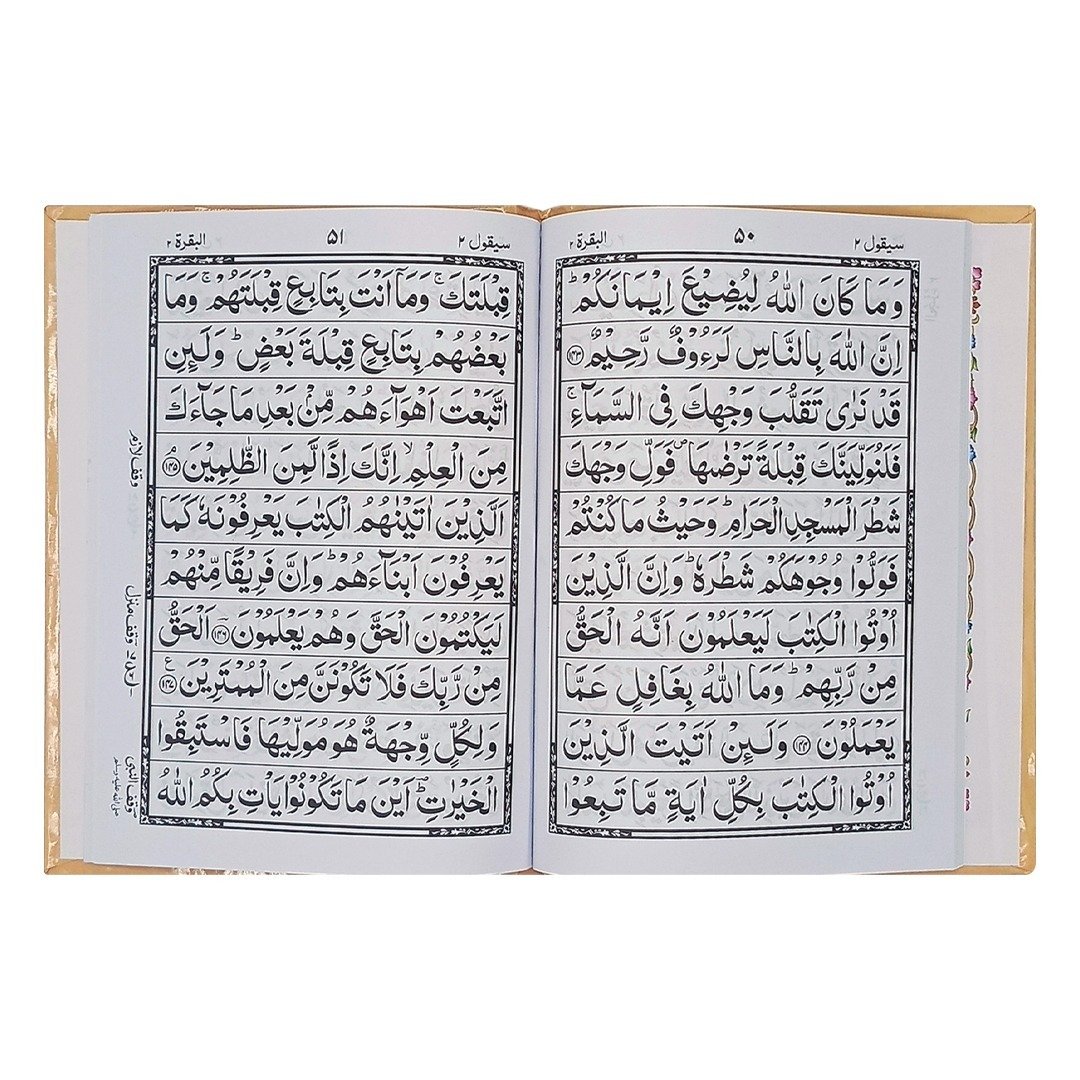 سيقول ٢ ٥٠ البقرة ٢
وَمَا كَانَ اللّٰهُ لِيُضِيْعَ اِيْمَانَكُمْ ؕ
اِنَّ اللّٰهَ بِالنَّاسِ لَرَءُوْفٌ رَّحِيْمٌ ﴿۱۴۳﴾
قَدْ نَرٰى تَقَلُّبَ وَجْهِكَ فِى السَّمَآءِ ۚ
فَلَنُوَلِّيَنَّكَ قِبْلَةً تَرْضٰىهَا ۪ فَوَلِّ وَجْهَكَ
شَطْرَ الْمَسْجِدِ الْحَرَامِ ؕ وَحَيْثُ مَا كُنْتُمْ
فَوَلُّوْا وُجُوْهَكُمْ شَطْرَهٗ ؕ وَاِنَّ الَّذِيْنَ
اُوْتُوا الْكِتٰبَ لَيَعْلَمُوْنَ اَنَّهُ الْحَقُّ
مِنْ رَّبِّهِمْ ؕ وَمَا اللّٰهُ بِغَافِلٍ عَمَّا
يَعْمَلُوْنَ ﴿۱۴۴﴾ وَلَئِنْ اَتَيْتَ الَّذِيْنَ
اُوْتُوا الْكِتٰبَ بِكُلِّ اٰيَةٍ مَّا تَبِعُوْا
سيقول ٢ ٥١ البقرة ٢
قِبْلَتَكَ ۚ وَمَآ اَنْتَ بِتَابِعٍ قِبْلَتَهُمْ ۚ وَمَا
بَعْضُهُمْ بِتَابِعٍ قِبْلَةَ بَعْضٍ ؕ وَلَئِنِ
اتَّبَعْتَ اَهْوَآءَهُمْ مِّنْۢ بَعْدِ مَا جَآءَكَ
مِنَ الْعِلْمِ ۙ اِنَّكَ اِذًا لَّمِنَ الظّٰلِمِيْنَ ۘ ﴿۱۴۵﴾
اَلَّذِيْنَ اٰتَيْنٰهُمُ الْكِتٰبَ يَعْرِفُوْنَهٗ كَمَا
يَعْرِفُوْنَ اَبْنَآءَهُمْ ؕ وَاِنَّ فَرِيْقًا مِّنْهُمْ
لَيَكْتُمُوْنَ الْحَقَّ وَهُمْ يَعْلَمُوْنَ ﴿۱۴۶﴾ اَلْحَقُّ
مِنْ رَّبِّكَ فَلَا تَكُوْنَنَّ مِنَ الْمُمْتَرِيْنَ ﴿۱۴۷﴾ ع
وَلِكُلٍّ وِّجْهَةٌ هُوَ مُوَلِّيْهَا فَاسْتَبِقُوا
الْخَيْرٰتِ ؕ اَيْنَ مَا تَكُوْنُوْا يَاْتِ بِكُمُ اللّٰهُ
وقف لازم
وقف منزل
وقف النبى
صلى الله عليه وسلم